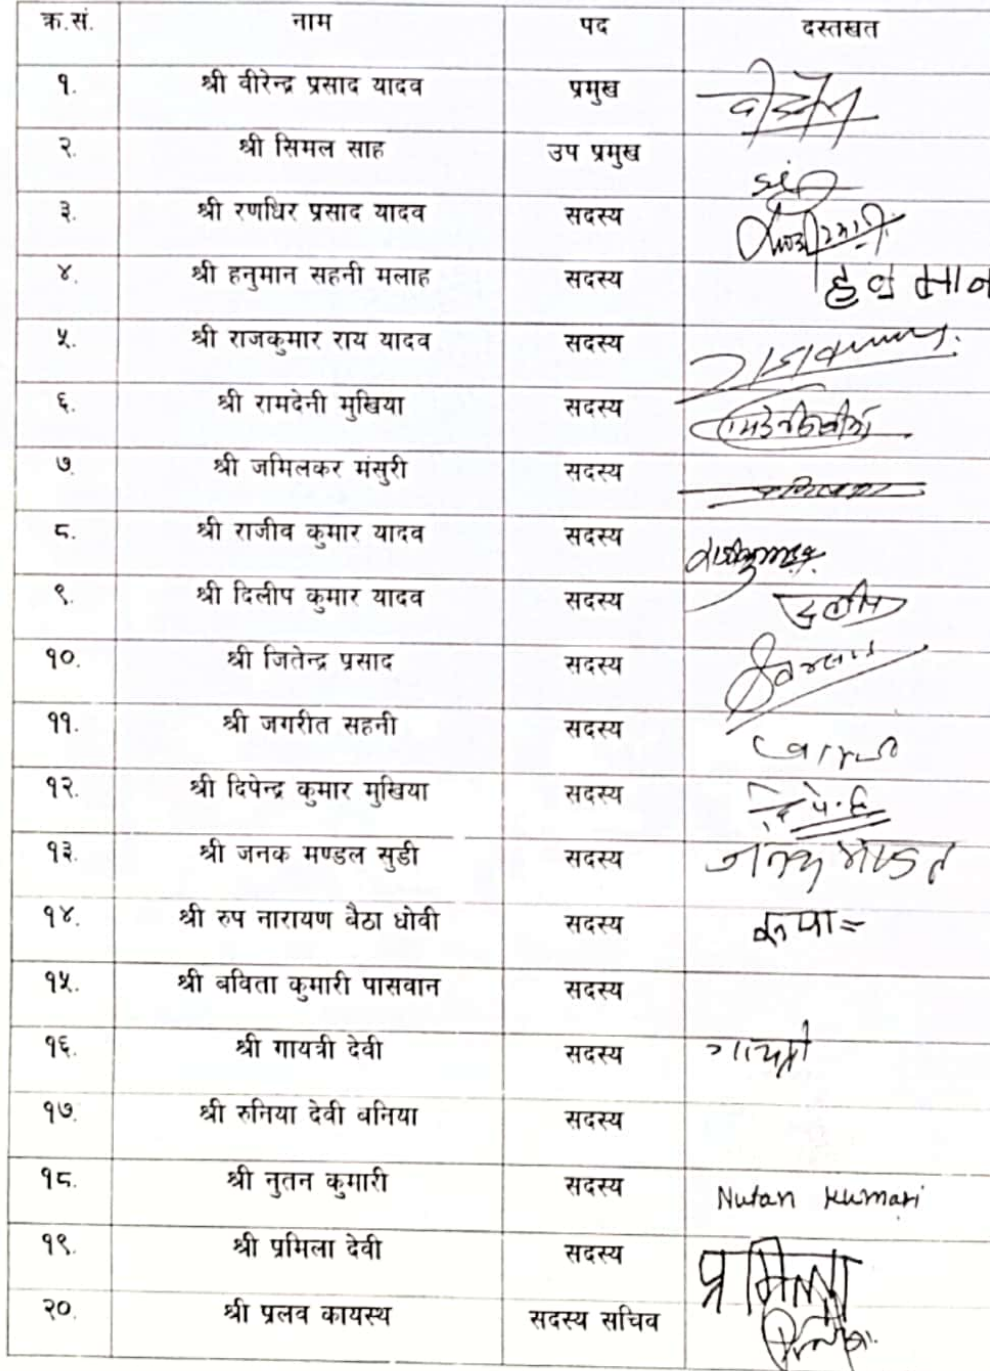 क्र.सं. नाम पद दस्तखत
१. श्री वीरेन्द्र प्रसाद यादव प्रमुख
२. श्री सिमल साह उप प्रमुख
३. श्री रणधिर प्रसाद यादव सदस्य
४. श्री हनुमान सहनी मलाह सदस्य हनुमान
५. श्री राजकुमार राय यादव सदस्य
६. श्री रामदेनी मुखिया सदस्य
७. श्री जमिलकर मंसुरी सदस्य
८. श्री राजीव कुमार यादव सदस्य
९. श्री दिलीप कुमार यादव सदस्य
१०. श्री जितेन्द्र प्रसाद सदस्य
११. श्री जगरीत सहनी सदस्य
१२. श्री दिपेन्द्र कुमार मुखिया सदस्य
१३. श्री जनक मण्डल सुडी सदस्य जनक मण्डल
१४. श्री रुप नारायण बैठा धोवी सदस्य
१५. श्री वविता कुमारी पासवान सदस्य
१६. श्री गायत्री देवी सदस्य गायत्री
१७. श्री रुनिया देवी वनिया सदस्य
१८. श्री नुतन कुमारी सदस्य Nutan Kumari
१९. श्री प्रमिला देवी सदस्य प्रमिला
२०. श्री प्रलव कायस्थ सदस्य सचिव